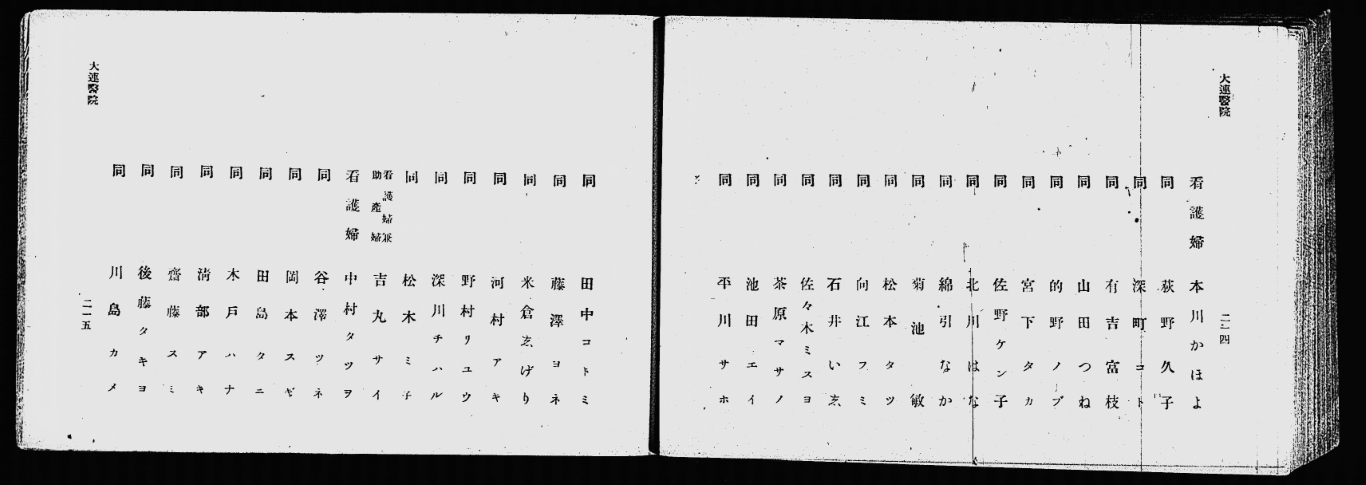 大連醫院
看護婦 本川かほよ
同 荻野久子
同 深町コト
同 有吉富枝
同 山田つね
同 的野ノブ
同 宮下タカ
同 佐野ケン子
同 北川はな
同 綿引なか
同 菊池敏
同 松本タツ
同 向江フミ
同 石井いゑ
同 佐々木ミスヨ
同 茶原マサノ
同 池田エイ
同 平川サホ
二一四
同 田中コトミ
同 藤澤ヨネ
同 米倉ゑげり
同 河村アキ
同 野村リユウ
同 深川チハル
同 松木ミ子
看護婦兼助產婦 吉丸サイ
看護婦 中村タツヲ
同 谷澤ツネ
同 岡本スギ
同 田島タニ
同 木戸ハナ
同 淸部アキ
同 齋藤スミ
同 後藤タキヨ
同 川島カメ
大連醫院
二一五